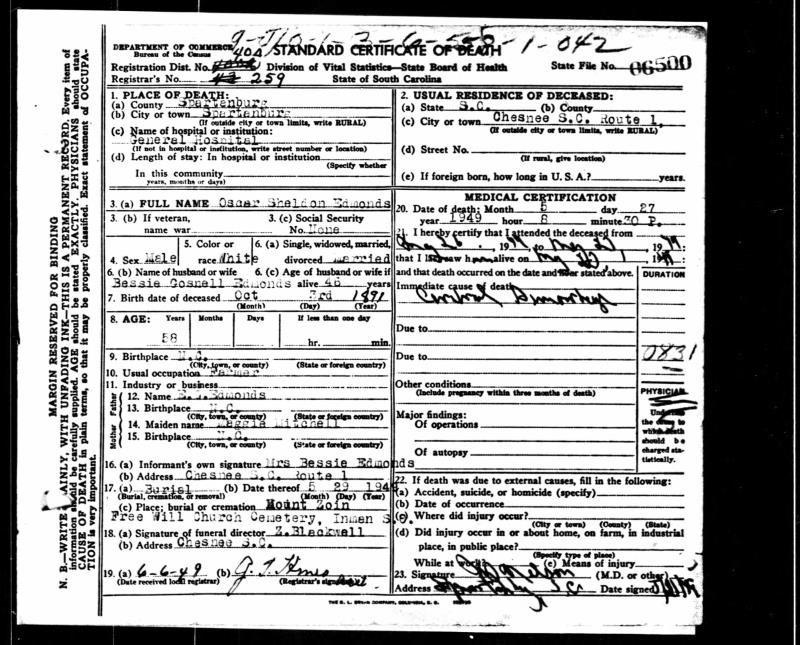 DEPARTMENT OF COMMERCE
Bureau of the Census
40A STANDARD CERTIFICATE OF DEATH 1-042
Registration Dist. No. Division of Vital Statistics—State Board of Health State File No. 06500
Registrar's No. 42 259 State of South Carolina
MARGIN RESERVED FOR BINDING
N. B.—WRITE PLAINLY, WITH UNFADING INK—THIS IS A PERMANENT RECORD. Every item of
information should be carefully supplied. AGE should be stated EXACTLY. PHYSICIANS should state
CAUSE OF DEATH in plain terms, so that it may be properly classified. Exact statement of OCCUPA-
TION is very important.
1. PLACE OF DEATH:
(a) County Spartenburg
(b) City or town Spartenburg
(If outside city or town limits, write RURAL)
(c) Name of hospital or institution:
General Hospital
(If not in hospital or institution, write street number or location)
(d) Length of stay: In hospital or institution
(Specify whether
In this community
years, months or days)
2. USUAL RESIDENCE OF DECEASED:
(a) State S.C. (b) County
(c) City or town Chesnee S.C. Route 1,
(If outside city or town limits, write RURAL)
(d) Street No.
(If rural, give location)
(e) If foreign born, how long in U. S. A.? years.
3. (a) FULL NAME Oscar Sheldon Edmonds
3. (b) If veteran, 3. (c) Social Security
name war No. None
4. Sex Male 5. Color or race White 6. (a) Single, widowed, married, divorced married
6. (b) Name of husband or wife 6. (c) Age of husband or wife if
Bessie Gosnell Edmonds alive 46 years
7. Birth date of deceased Oct 3rd 1891
(Month) (Day) (Year)
8. AGE: Years Months Days If less than one day
58 hr. min.
9. Birthplace N.C.
(City, town, or county) (State or foreign country)
10. Usual occupation Farmer
11. Industry or business
Father
12. Name E.J.Edmonds
13. Birthplace N.C.
(City, town, or county) (State or foreign country)
Mother
14. Maiden name Maggie Mitchell
15. Birthplace N.C.
(City, town, or county) (State or foreign country)
16. (a) Informant's own signature Mrs Bessie Edmonds
(b) Address Chesnee S.C. Route 1
17. (a) Burial (b) Date thereof 5 29 194
(Burial, cremation, or removal) (Month) (Day) (Year)
(c) Place; burial or cremation Mount Zoin
Free Will Church Cemetery, Inman S.C.
18. (a) Signature of funeral director Z.Blackwell
(b) Address Chesnee S.C.
19. (a) 6-6-49 (b)
(Date received local registrar) (Registrar's signature)
MEDICAL CERTIFICATION
20. Date of death: Month 5 day 27
year 1949 hour 8 minute 30 P.
21. I hereby certify that I attended the deceased from
, 19 , to , 19
that I saw h alive on , 19
and that death occurred on the date and hour stated above.
DURATION
Immediate cause of death
Due to
Due to
0831
Other conditions
(Include pregnancy within three months of death)
PHYSICIAN
Major findings:
Of operations
Of autopsy
Underline
the cause to
which death
should be
charged sta-
tistically.
22. If death was due to external causes, fill in the following:
(a) Accident, suicide, or homicide (specify)
(b) Date of occurrence
(c) Where did injury occur?
(City or town) (County) (State)
(d) Did injury occur in or about home, on farm, in industrial
place, in public place?
(Specify type of place)
While at work? (e) Means of injury
23. Signature (M.D. or other)
Address Date signed